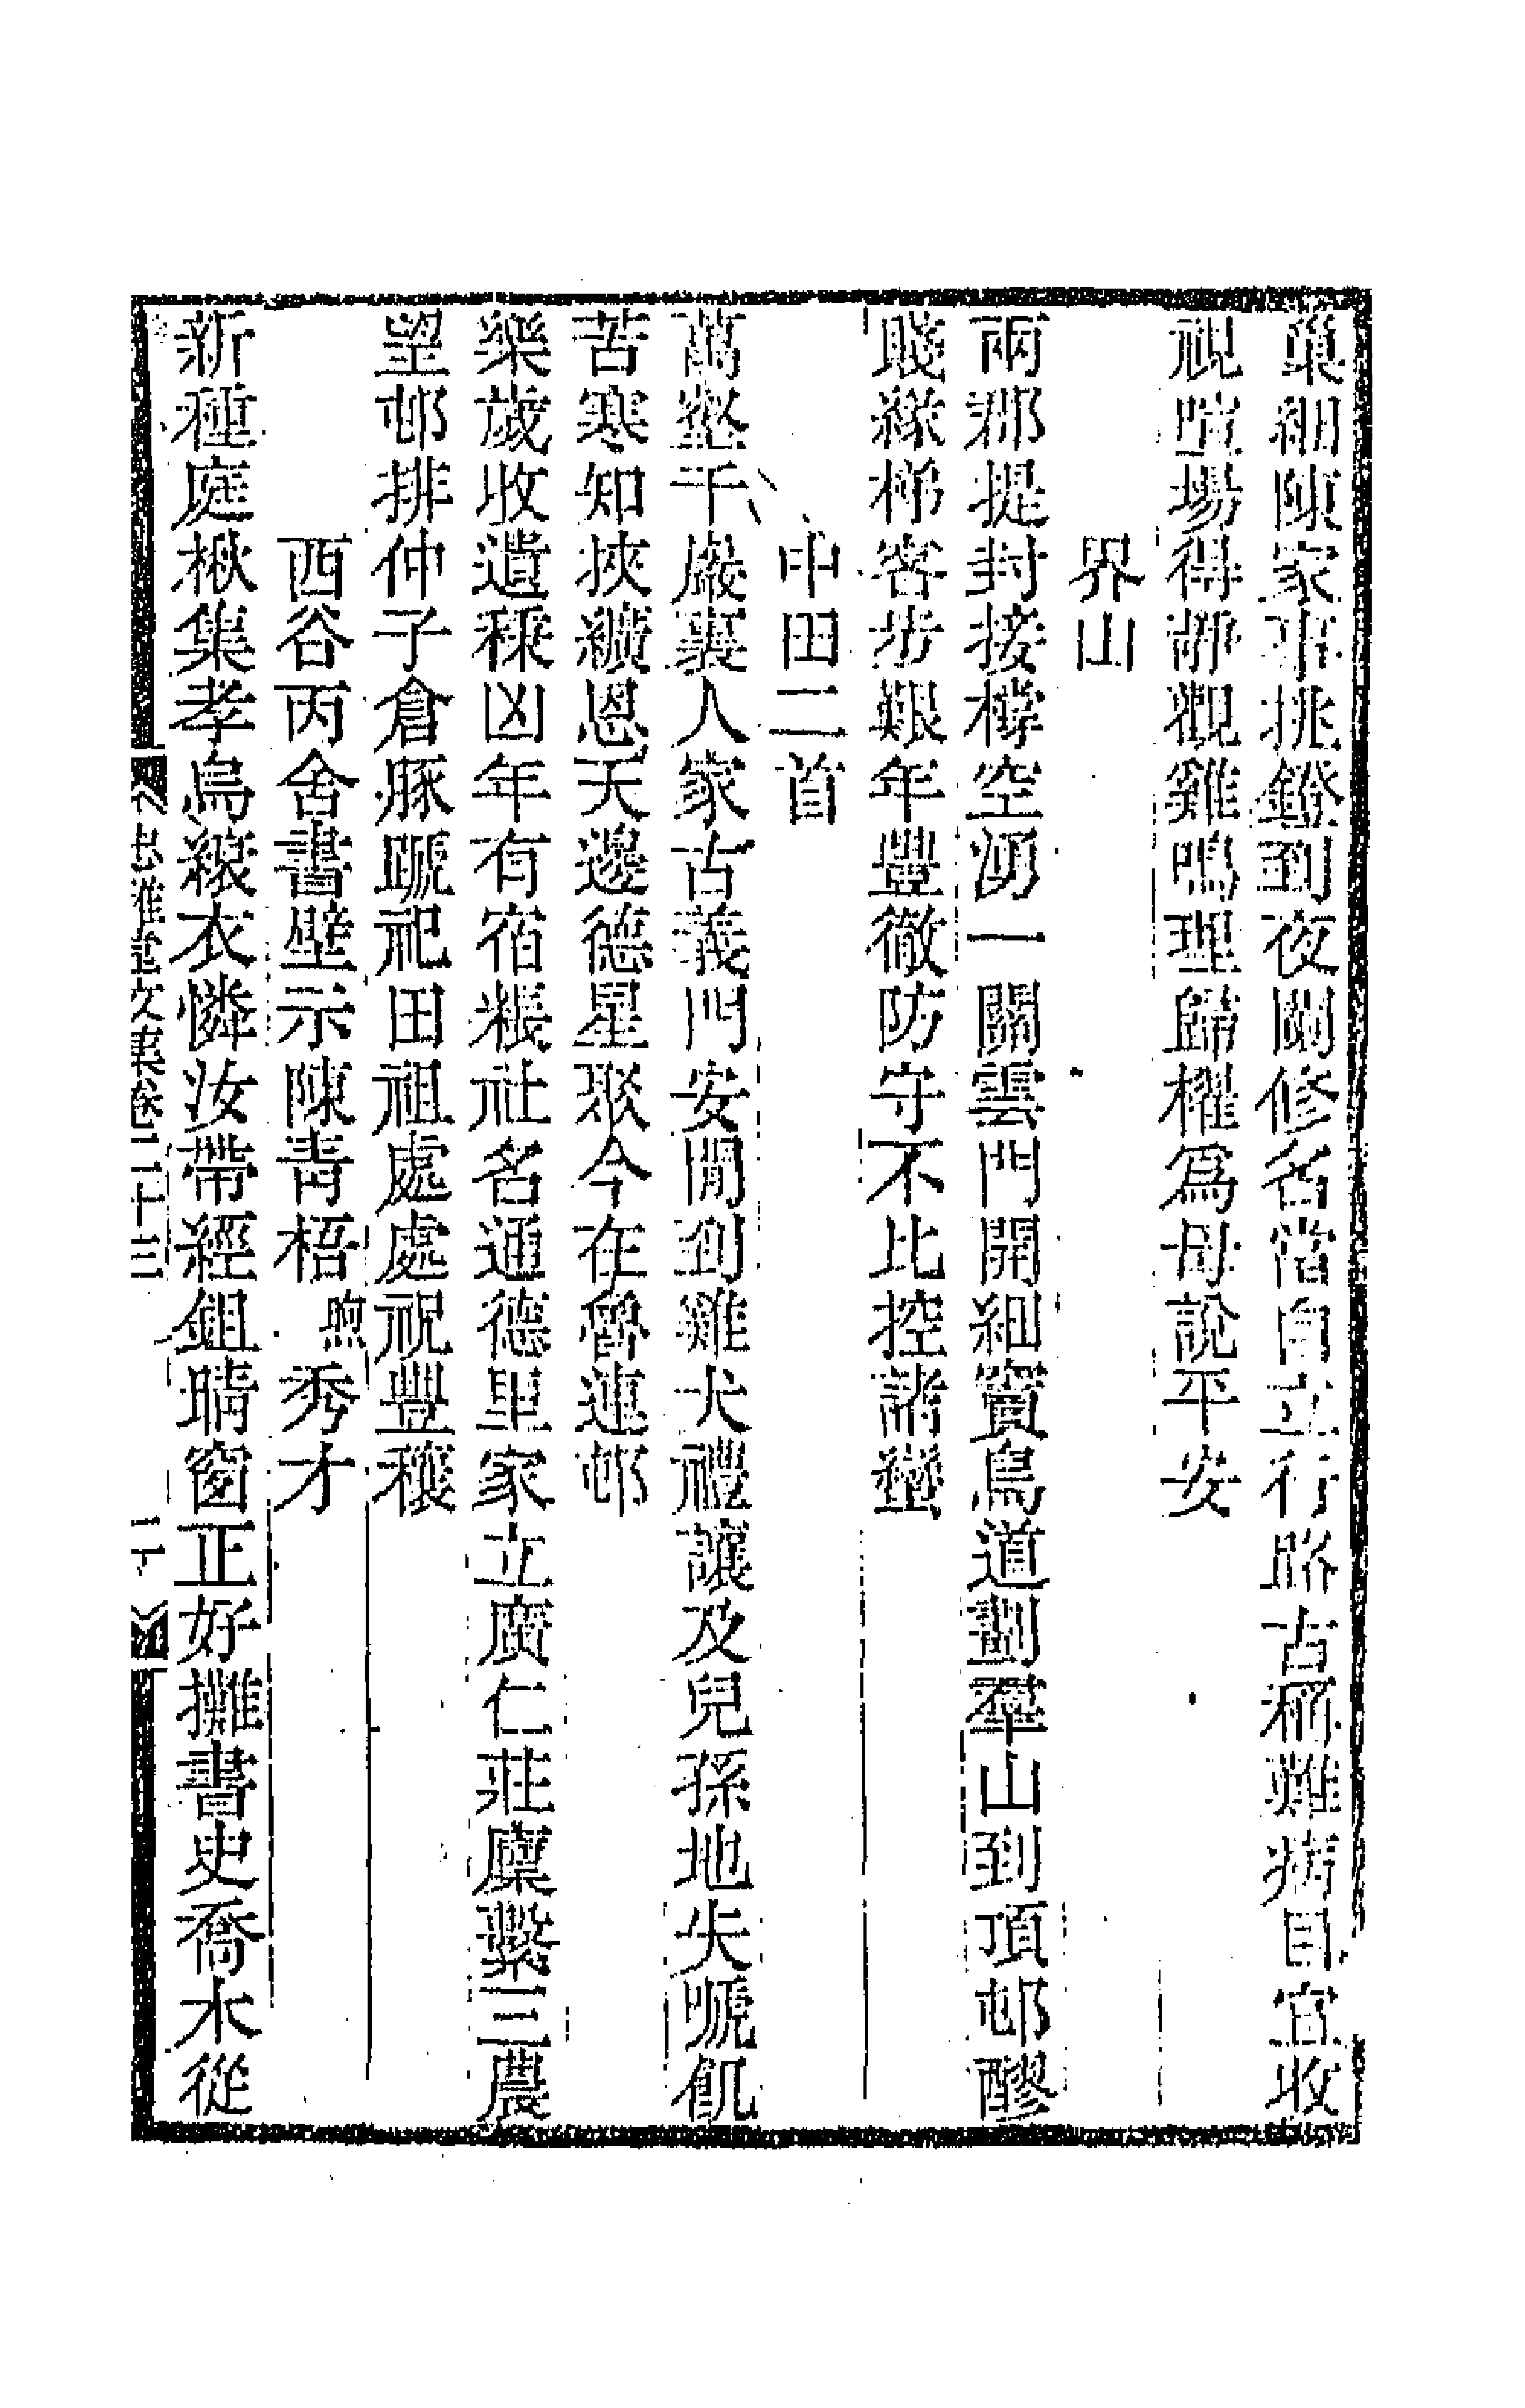 巢細陳家事挑鐙到夜闌修名當自立行路古稱難病目宜收
視 場得靜觀雞鳴理歸櫂為母說平安
界山
兩郡提封接撐空湧一關雲門開細竇鳥道劃羣山到頂邨醪
賤緣梯客步艱年豐徹防守不比控諸蠻
中田二首
萬壑千巖裏人家古義門安閒到雞犬禮讓及兒孫地失號飢
苦寒知挾纊恩天邊德星聚今在魯連邨
樂歲收遺秉凶年有宿糧社名通德里家立廣仁莊廩繫三農
望邨排仲子倉豚蹏祀田祖處處祝豐穰
西谷丙舍書壁示陳青梧煦秀才
新種庭楸集孝烏縗衣憐汝帶經鉏晴窗正好攤書史喬木從
忠雅堂文集卷二十三 二十